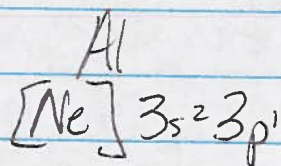 Al
[Ne] 3s² 3p¹